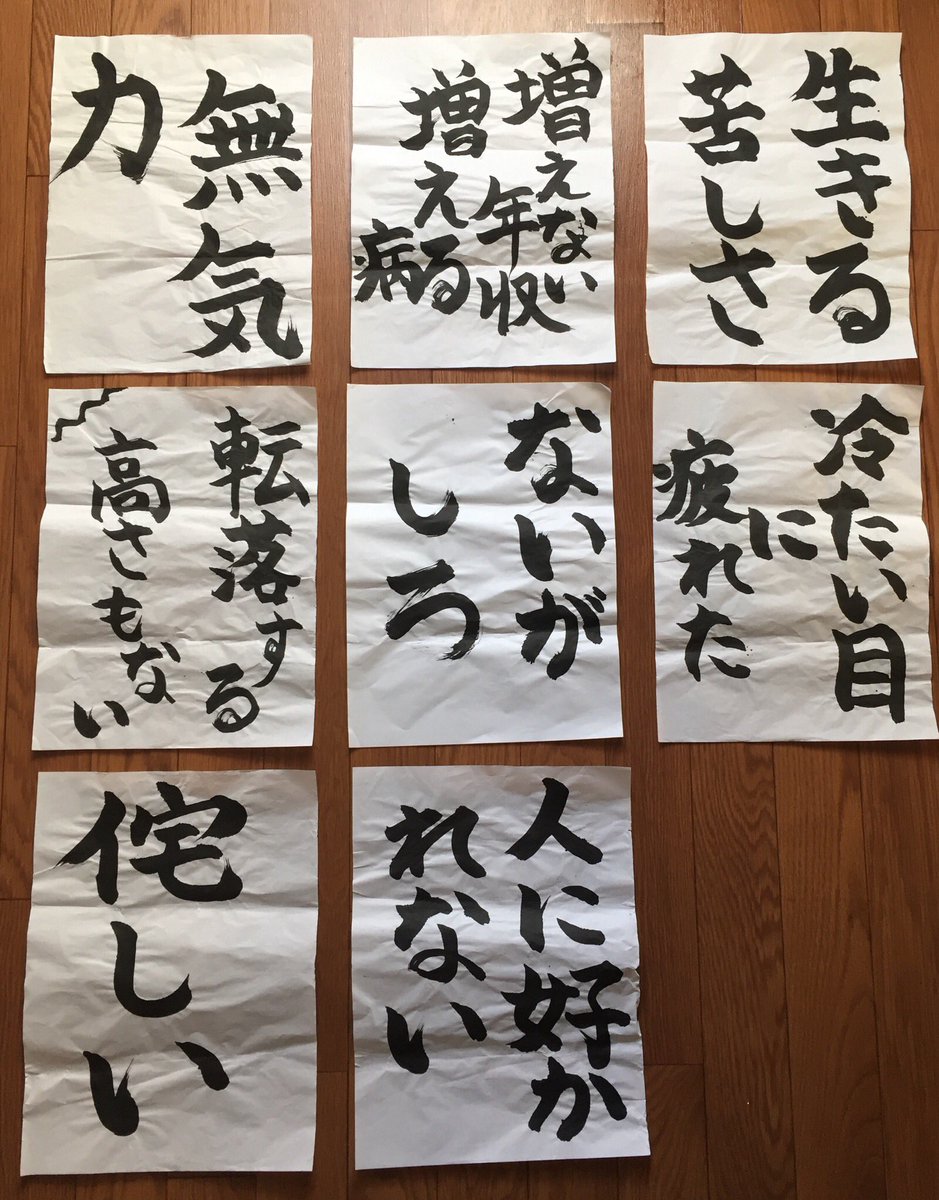 生きる
苦しさ
増えない
年収
増える
病
無気
力
冷たい目
に
疲れた
ないが
しろ
転落する
高さもない
人に好か
れない
侘しい